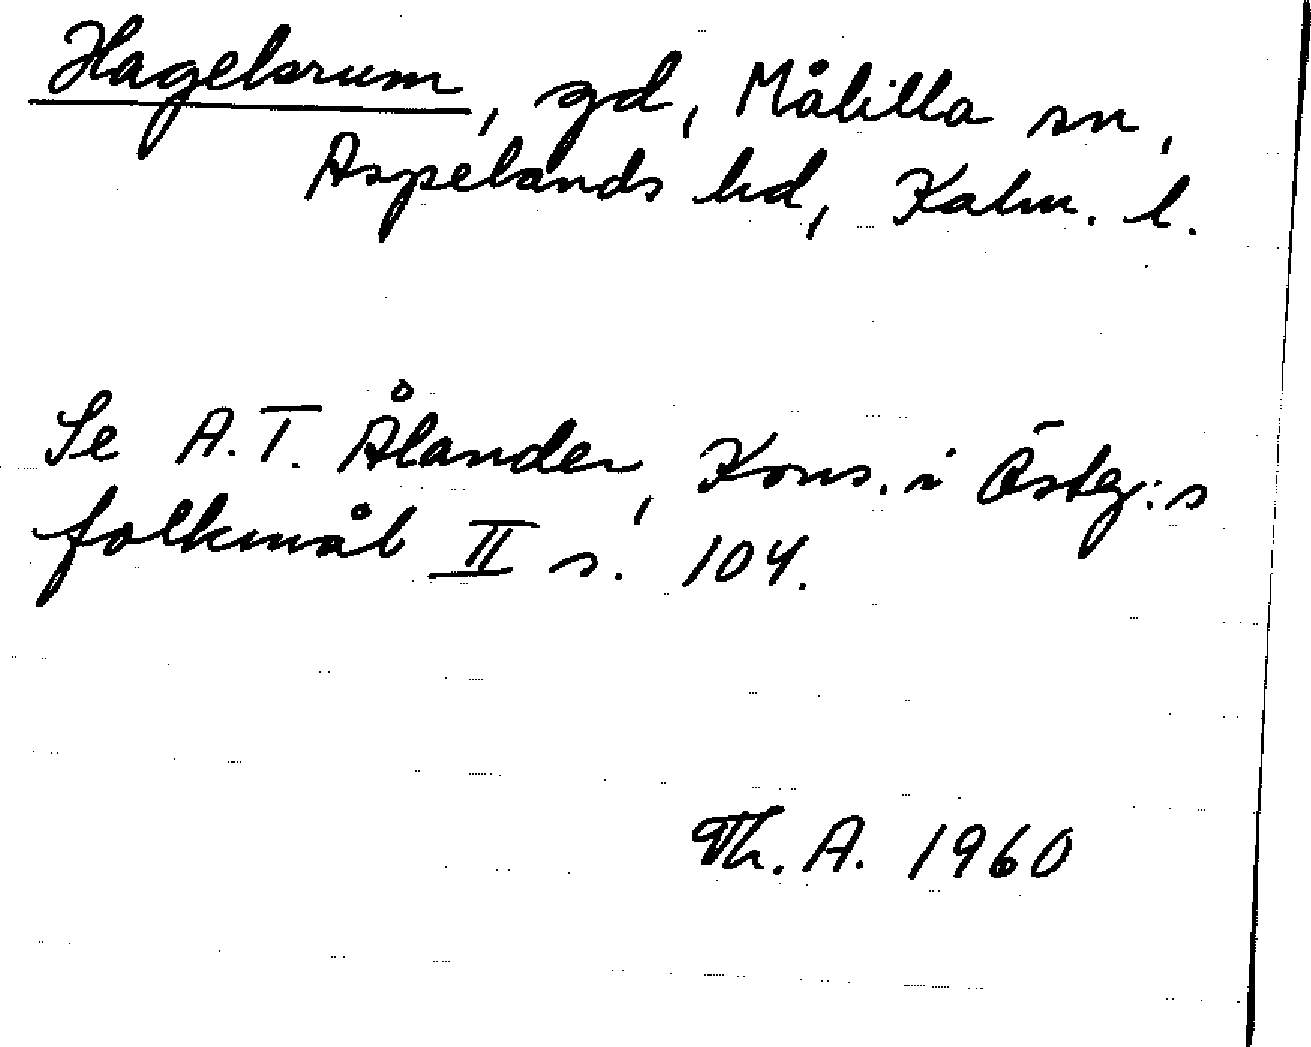 Hagelsrum, gd, Målilla sn,
Aspelands hd, Kalm. l.
Se A.T. Ålander, Kons. i Östg:s
folkmål II s. 104.
Th. A. 1960